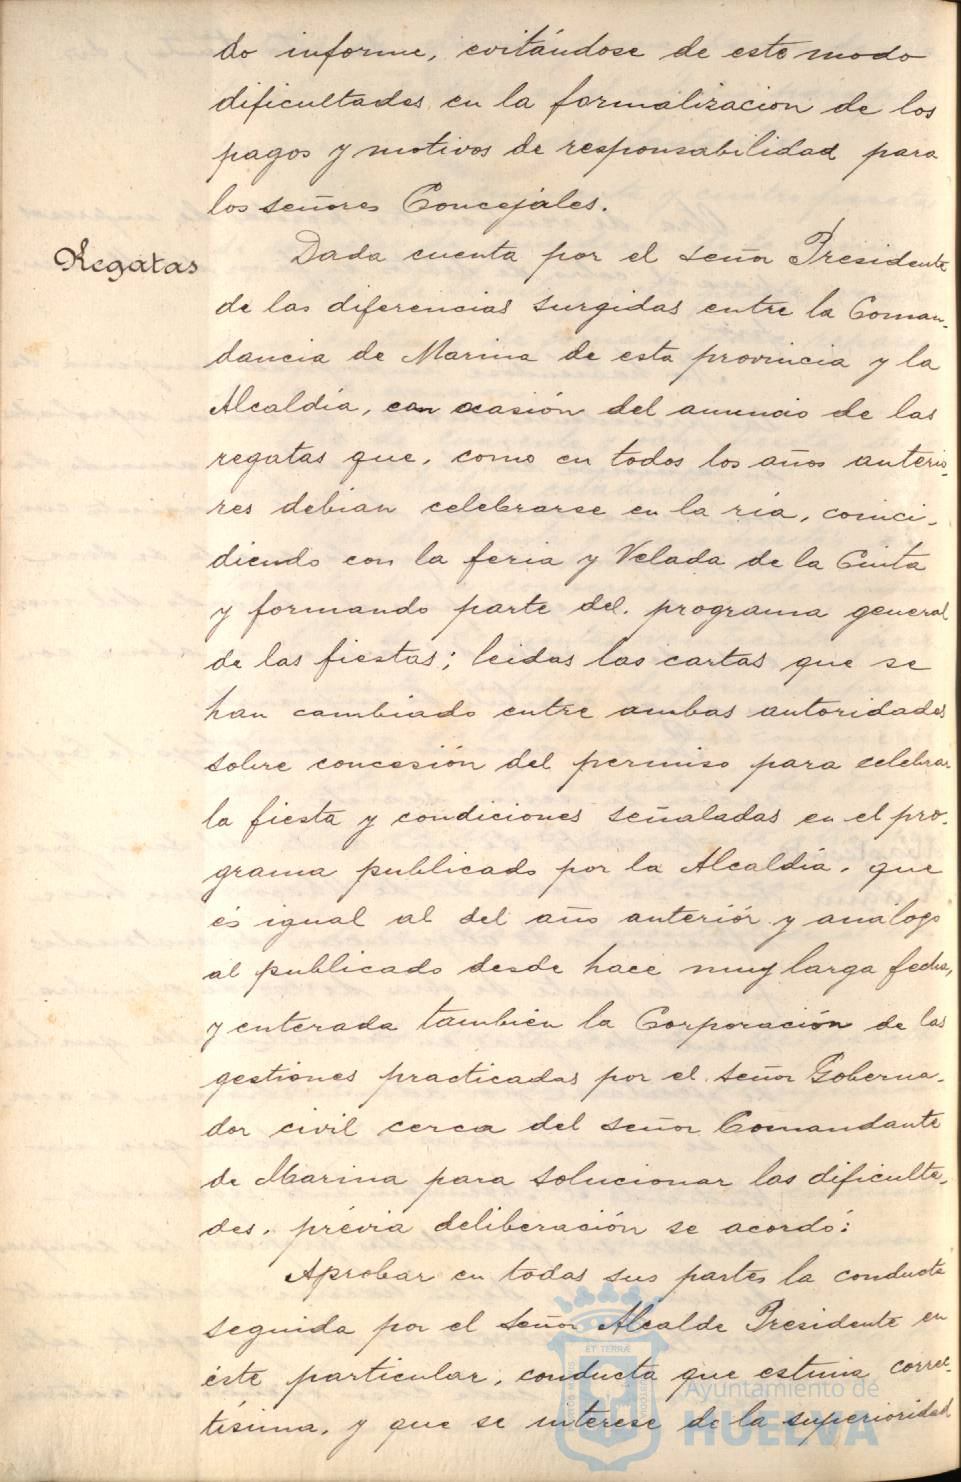 do informe, evitándose de este modo
dificultades en la formalizacion de los
pagos y motivos de responsabilidad para
los señores Concejales.
Regatas
Dada cuenta por el señor Presidente
de las diferencias surgidas entre la Coman-
dancia de Marina de esta provincia y la
Alcaldía, con ocasión del anuncio de las
regatas que, como en todos los años anterio-
res debian celebrarse en la ria, coinci-
diendo con la feria y Velada de la Cinta
y formando parte del programa general
de las fiestas; leidas las cartas que se
han cambiado entre ambas autoridades
sobre concesión del permiso para celebrar
la fiesta y condiciones señaladas en el pro-
grama publicado por la Alcaldía, que
és igual al del año anteriór y análogo
al publicado desde hace muy larga fecha,
y enterada tambien la Corporación de las
gestiones practicadas por el señor Goberna-
dor civil cerca del señor Comandante
de Marina para solucionar las dificulta-
des, prévia deliberación se acordó:
Aprobar en todas sus partes la conducta
seguida por el señor Alcalde Presidente en
éste particular, conducta que estima correc-
tísima, y que se interese de la superioridad
ET TERRÆ
Ayuntamiento de
HUELVA